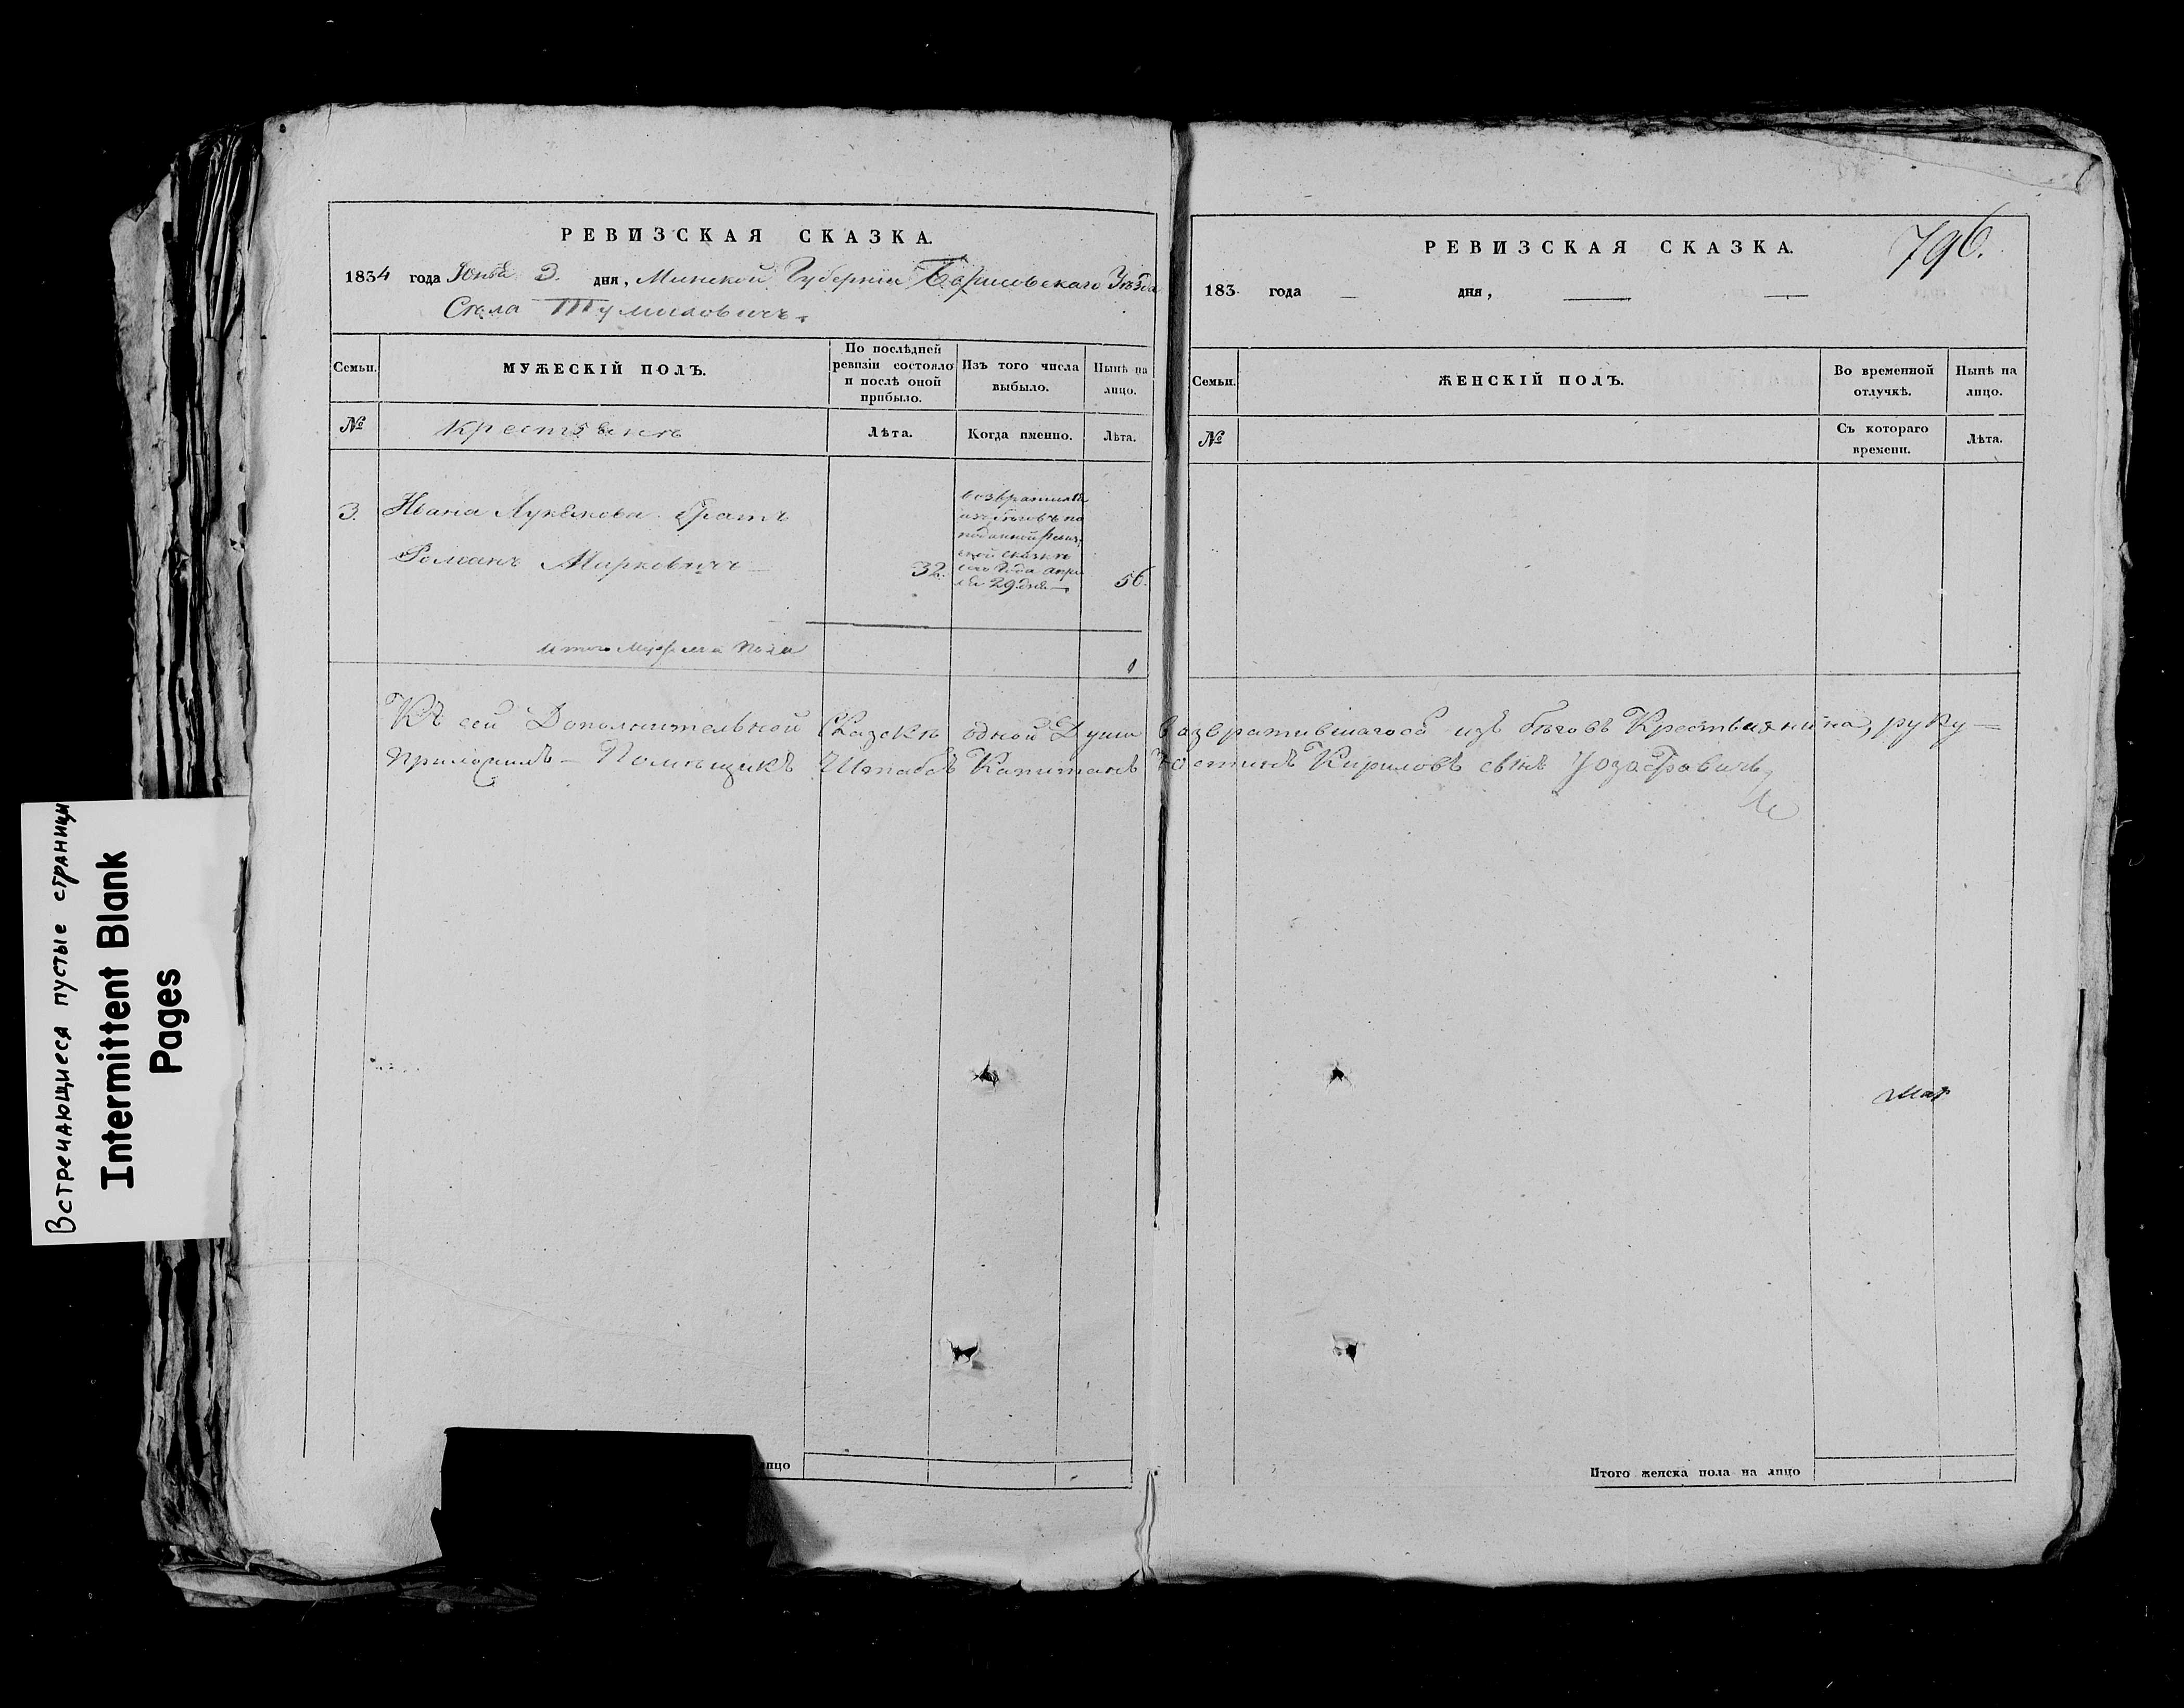 РЕВИЗСКАЯ СКАЗКА.
1834 года Юня 3. дня, Минской Губерніи Борисовскаго Уѣзда
Села Тумиловичъ.
Семьи.
МУЖЕСКІЙ ПОЛЪ.
По послѣдней
ревизіи состояло
и послѣ оной
прибыло.
Изъ того числа
выбыло.
Нынѣ на
лицо.
№
Крестьянъ
Лѣта.
Когда именно.
Лѣта.
3. Ивана братъ
Романъ Марковичъ 32. 56.
возвратился
изъ бѣговъ по
поданной Ревиз-
ской сказкѣ
сего года апре
ля 29 дня
итого Мужеска пола 1
Къ сей Дополнительной Сказкѣ одной Души возвратившагося изъ бѣговъ Крестьянина, руку
приложилъ – Помѣщикъ Штабсъ Капитанъ Кириловъ сынъ
лицо
РЕВИЗСКАЯ СКАЗКА.
796.
183 года — дня, — —
Семьи.
ЖЕНСКІЙ ПОЛЪ.
Во временной
отлучкѣ.
Нынѣ на
лицо.
№
Съ котораго
времени.
Лѣта.
Итого женска пола на лицо
Встречающиеся пустые страницы
Intermittent Blank
Pages